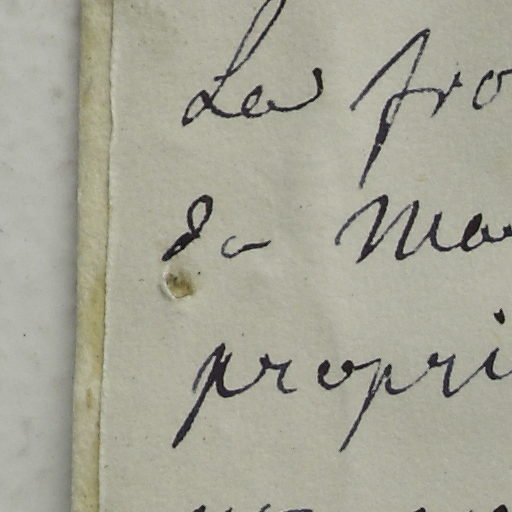 La fro
da Ma
propri